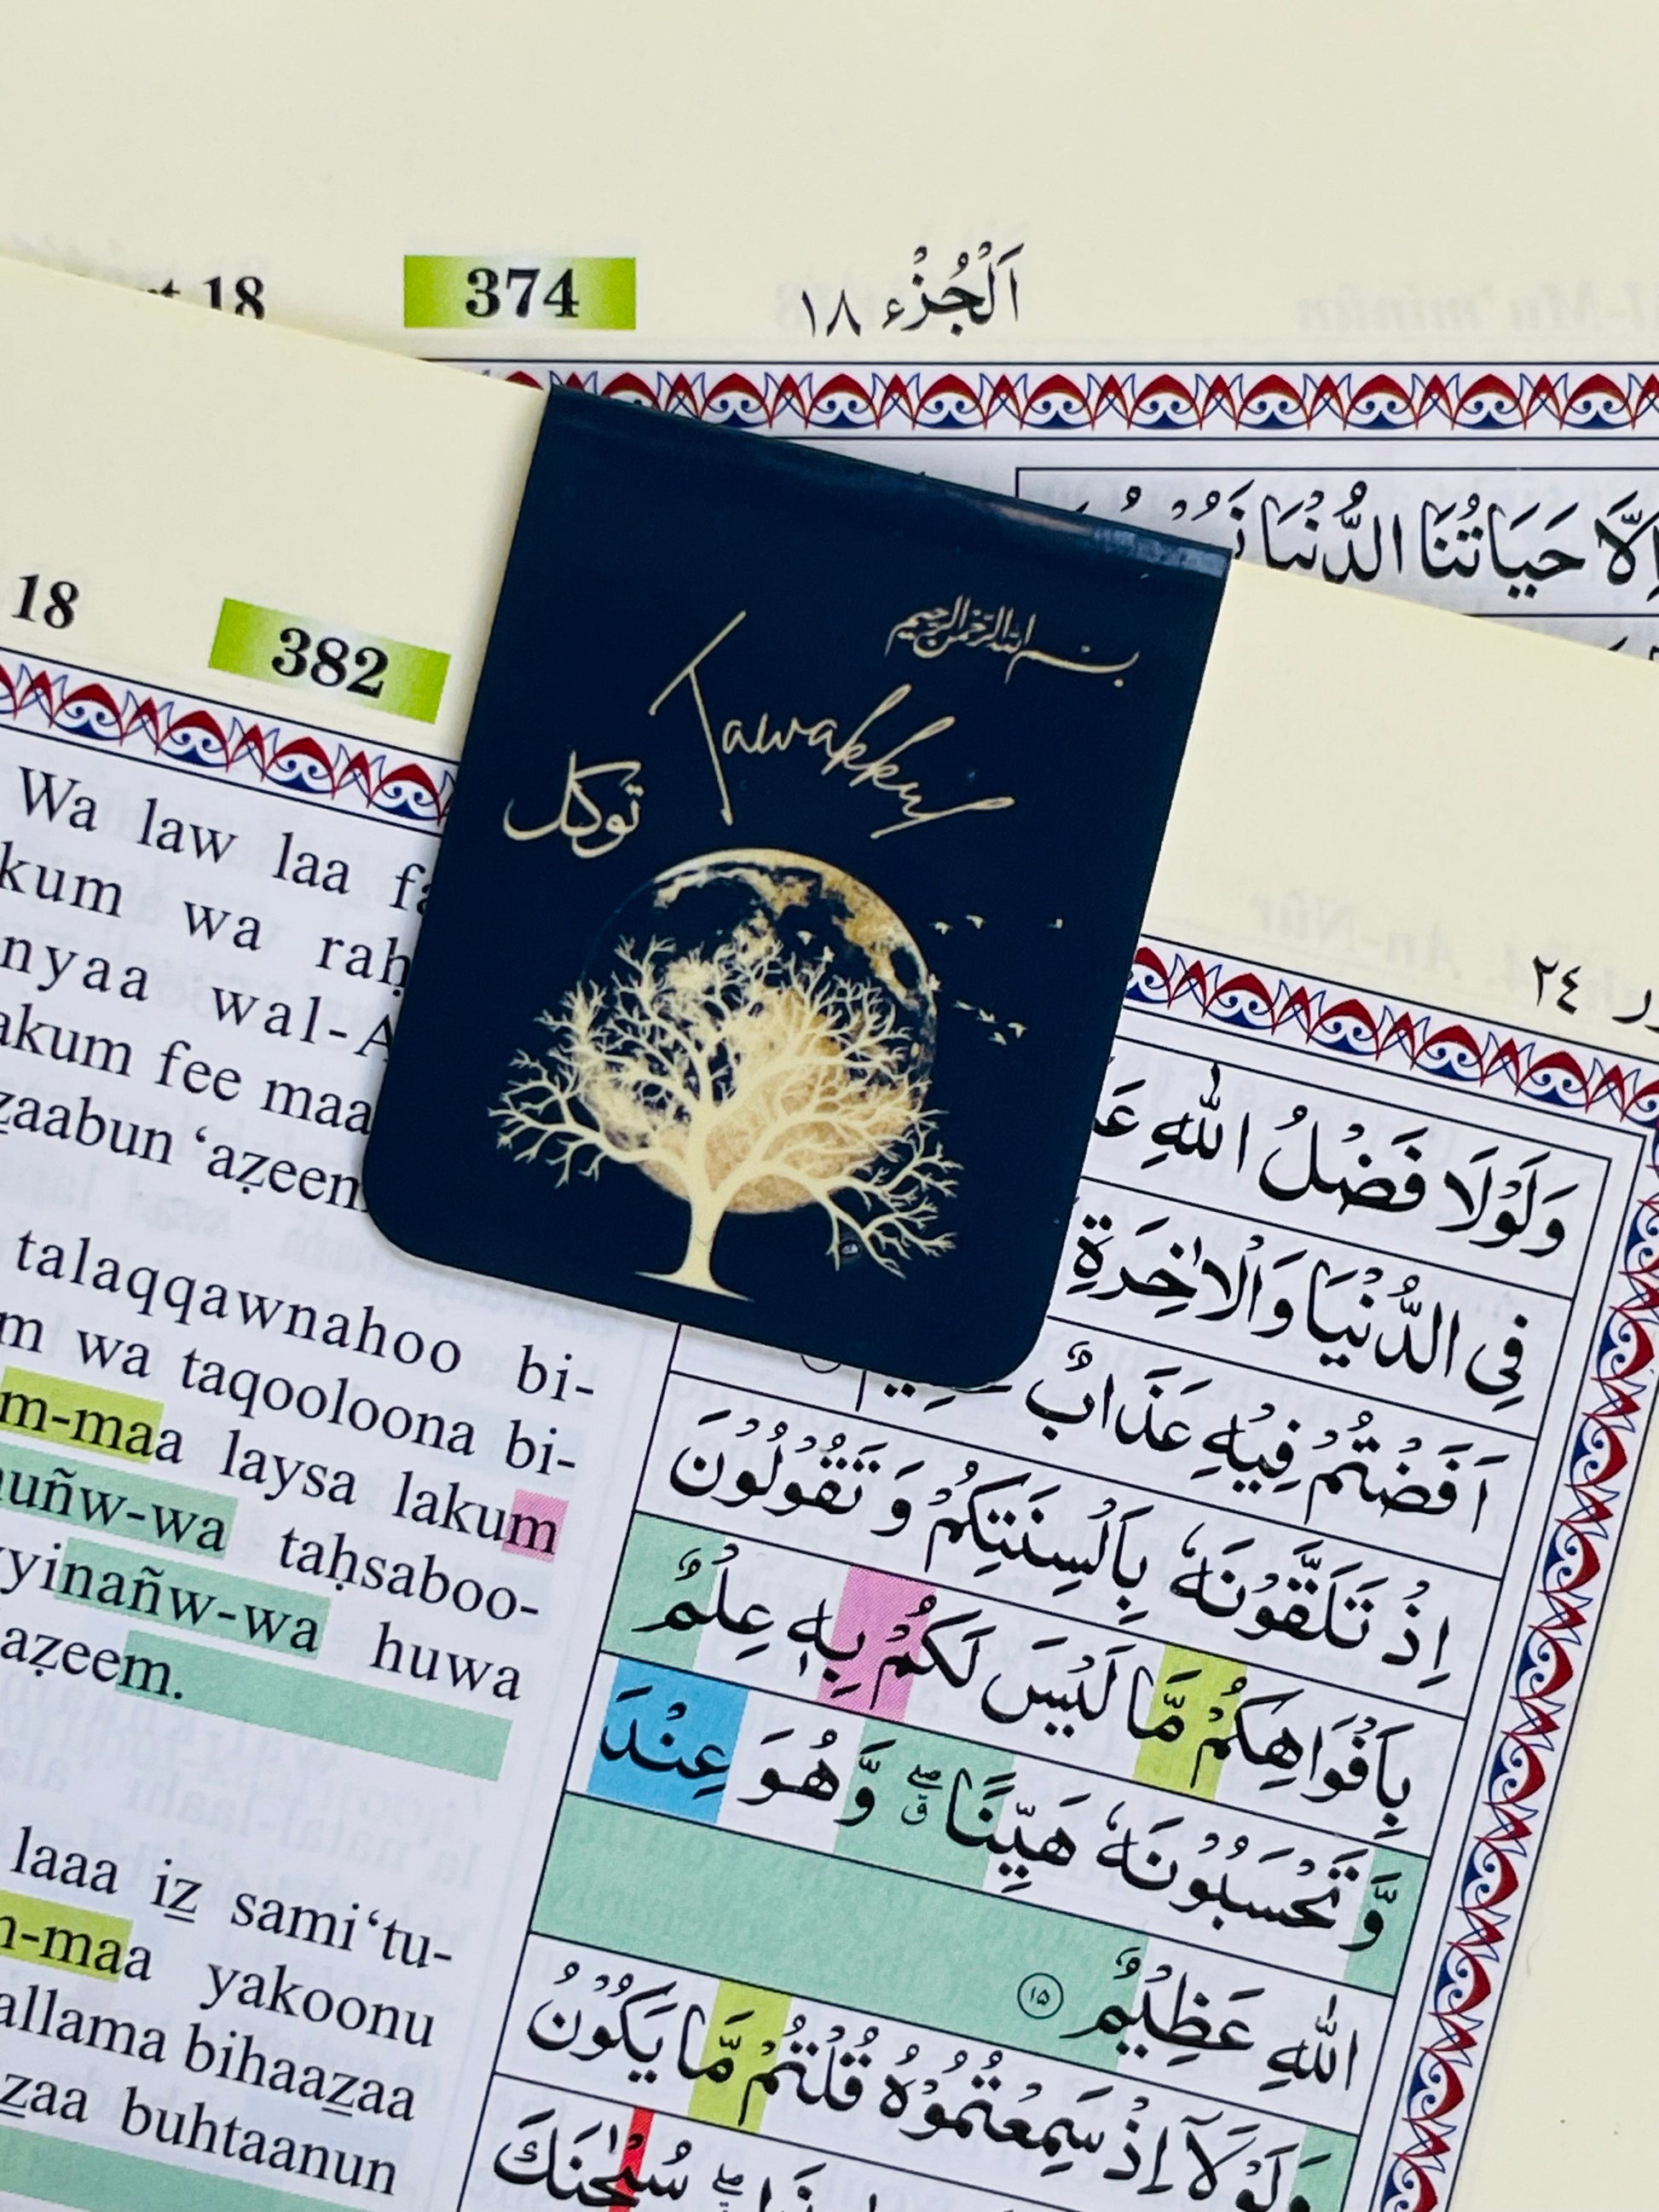 18
374
اَلْجُزْء ١٨
اِلَّا حَيَاتُنَا الدُّنْيَا
18
382
٢٤
بسم الله الرحمن الرحيم
Tawakkul
توكل
Wa law laa
kum wa
nyaa wal-A
akum fee maa
zaabun ‘aẓeem
talaqqawnahoo bi-
m wa taqooloona bi-
m-maa laysa lakum
uñw-wa taḥsaboo-
yyinañw-wa huwa
aẓeem.
laaa iz̲ sami‘tu-
m-maa yakoonu
allama bihaaz̲aa
z̲aa buhtaanun
وَلَوْلَا فَضْلُ اللّٰهِ
فِى الدُّنْيَا وَالْاٰخِرَةِ
اَفَضْتُمْ فِيْهِ عَذَابٌ
اِذْ تَلَقَّوْنَهٗ بِاَلْسِنَتِكُمْ وَ تَقُوْلُوْنَ
بِاَفْوَاهِكُمْ مَّا لَيْسَ لَكُمْ بِهٖ عِلْمٌ
وَّ تَحْسَبُوْنَهٗ هَيِّنًا ۖۗ وَّهُوَ عِنْدَ
اللّٰهِ عَظِيْمٌ ١٥
وَلَوْلَآ اِذْ سَمِعْتُمُوْهُ قُلْتُمْ مَّا يَكُوْنُ
سُبْحٰنَكَ